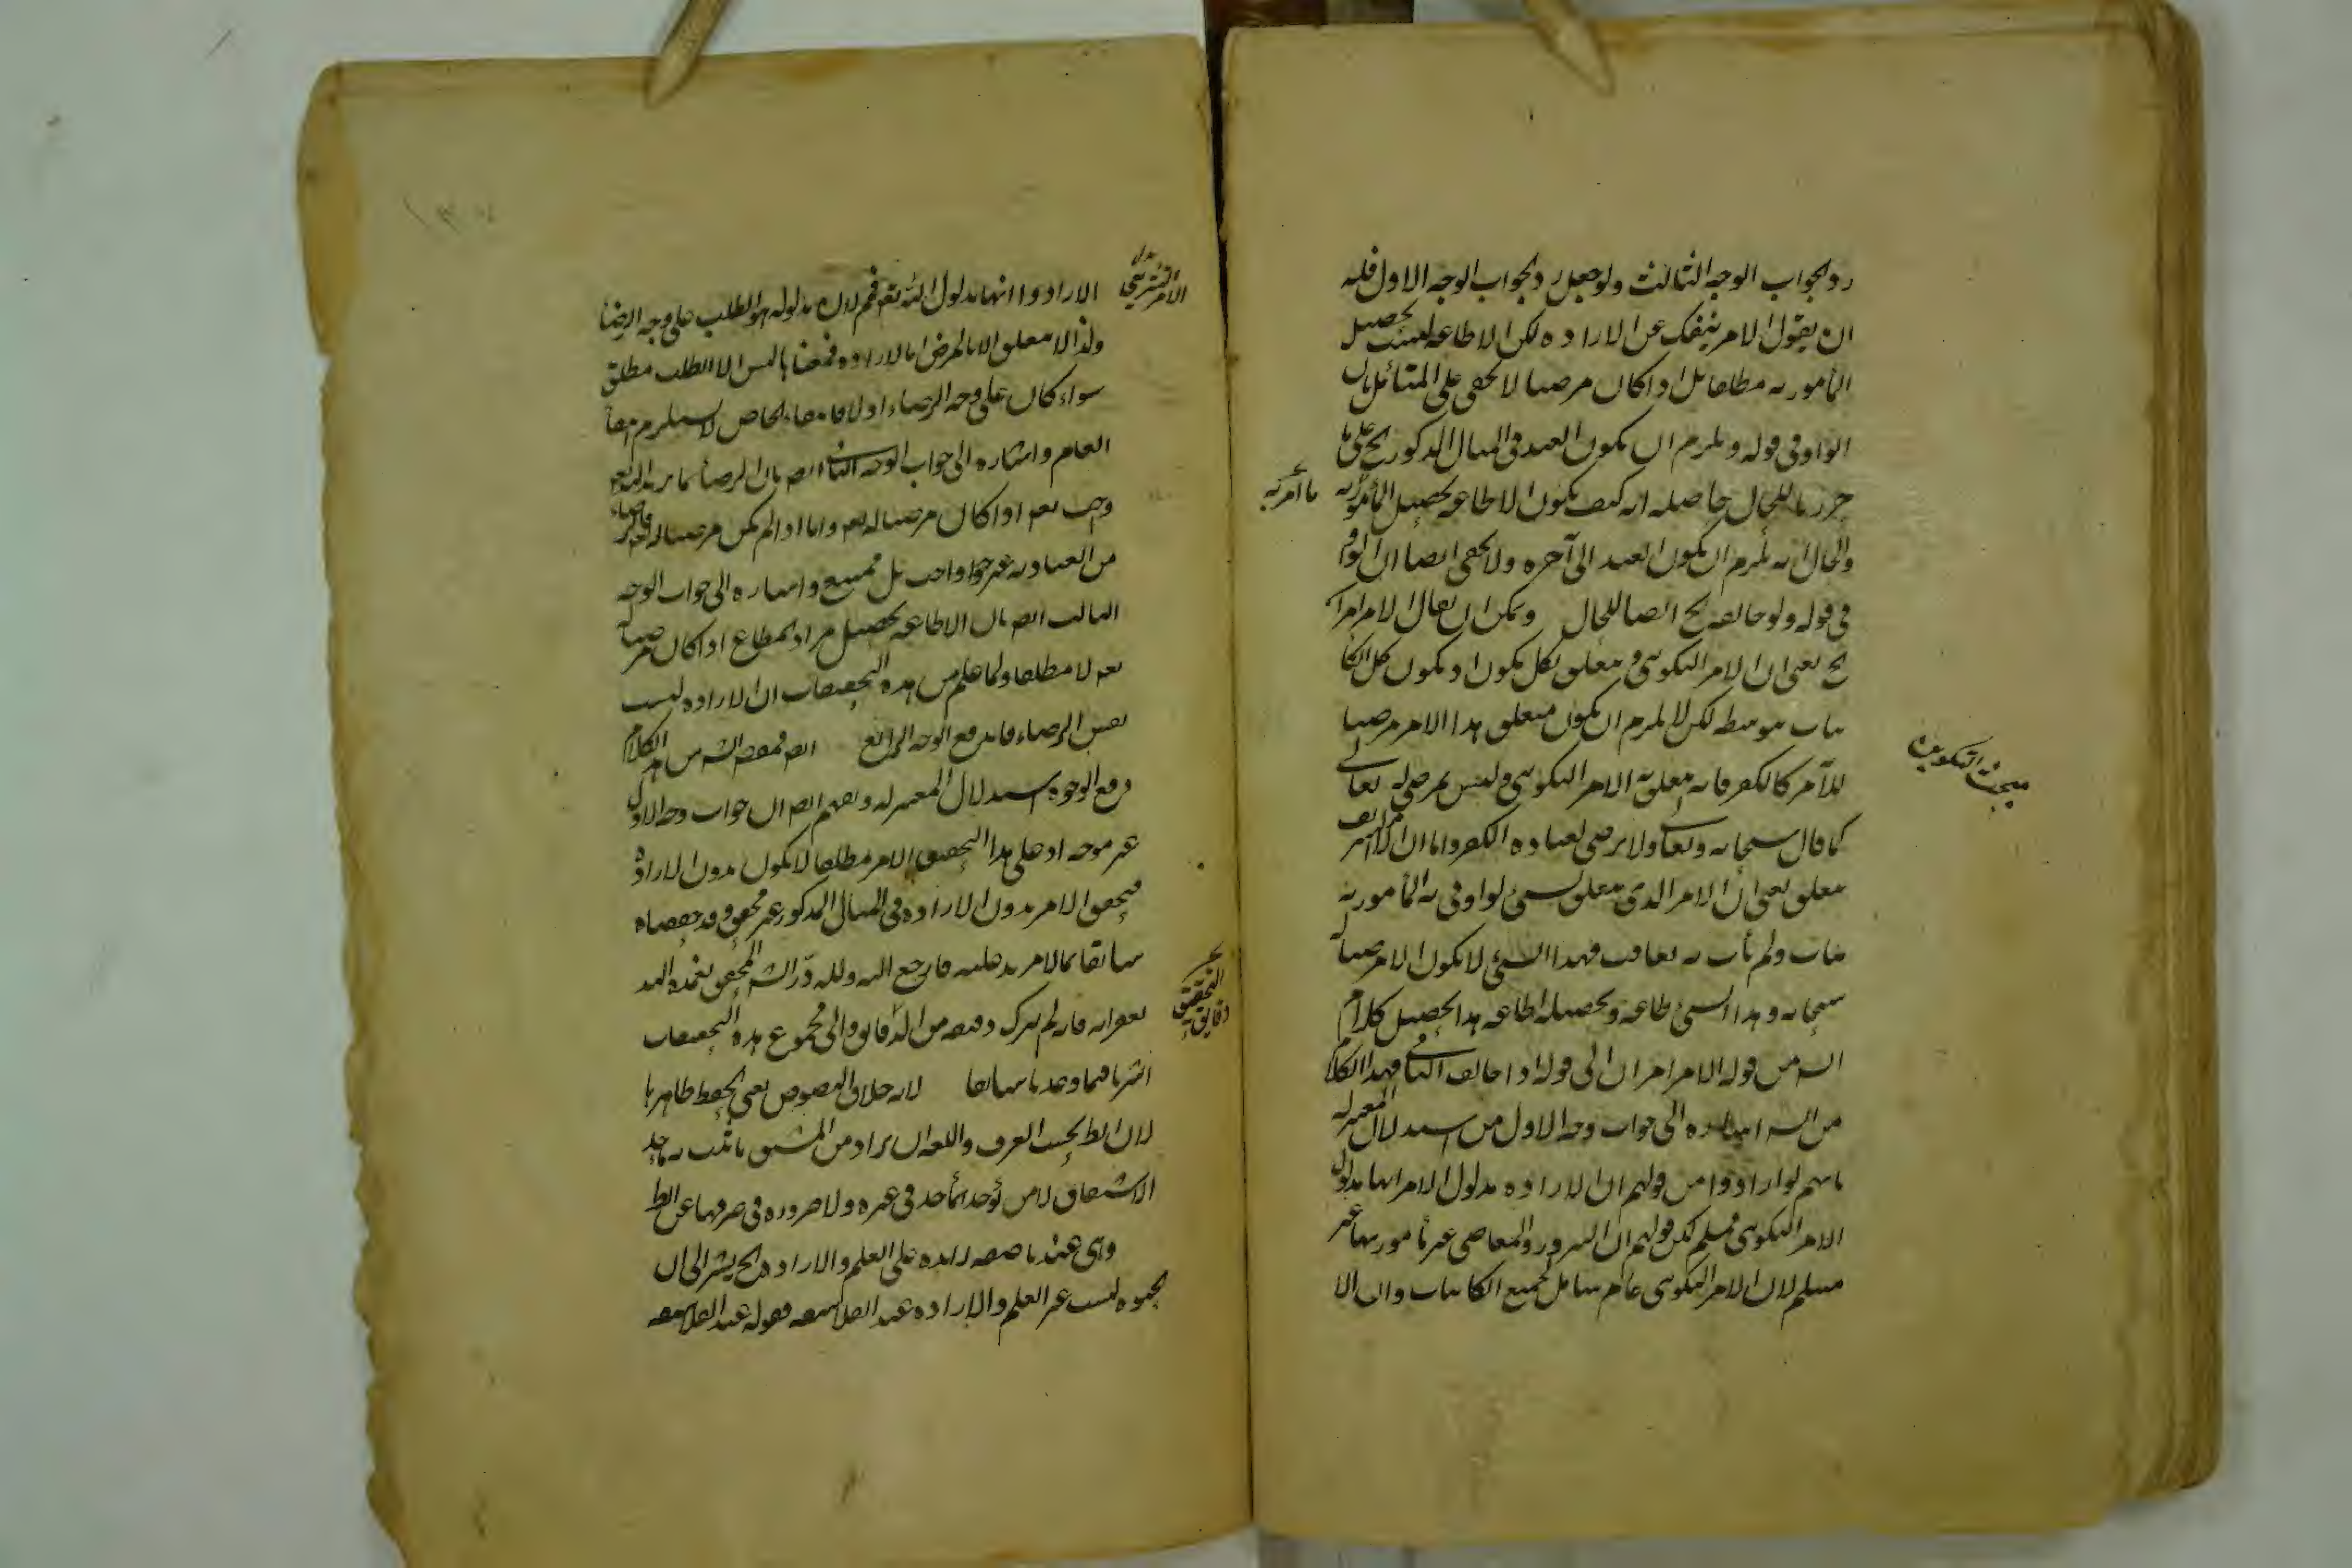 رد بجواب الوجه الثالث ولو جعل رد بجواب الوجه الاول فله
ان يقول الامر ينفك عن الارادة لكن الاطاعة ليست تحصيل
المأمور به مطلقا بل اذا كان مرضيا لا يخفى على المتأمل ان
الواو في قوله ويلزم ان يكون العبد في المثال المذكور ح على ما
حررنا للحال حاصله انه كيف يكون الاطاعة تحصيل المأمور به
ما امر به
والحال انه يلزم ان يكون العبد الى آخره ولا يخفى ايضا ان الواو
في قوله ولو خالفه ح ايضا للحال ويمكن ان يقال الامر امران
ح يعني ان الامر التكويني متعلق بكل يكون اذ يكون كل الكا
ينات بتوسطه لكن لا يلزم ان يكون متعلق هذا الامر مرضيا
مبحث التكوين
للآمر كالكفر فانه متعلق الامر التكويني وليس بمرضي له تعالى
كما قال سبحانه وتعالى ولا يرضى لعباده الكفر واما ان الامر
متعلق يعني ان الامر الذي متعلق بشئ لو اوفى به المأمور به
يثاب ولم يأت به يعاقب فهذا الشئ لا يكون الا مرضيا له
سبحانه وهذا الشئ طاعة وتحصيله اطاعة هذا تحصيل كلام
الش من قوله الامر امران الى قوله اذا خالف الثاني فهذا الكلام
من الش اشارة الى جواب وجه الاول من استدلال المعتزلة
بانهم لو ارادوا من قولهم ان الارادة مدلول الامر انها مدلول
الامر التكويني فمسلم لكن قولهم ان الشرور والمعاصي غير مأمور بها غير
مسلم لان الامر التكويني عام شامل لجميع الكائنات وان الا
الامر التشريعي
الارادوا انها مدلول الثه تعه فمم لان مدلوله هو الطلب على وجه الرضا
ولذا لا متعلق الا بالمرضي اما الارادة فمعناها ليس الا الطلب مطلق
سواء كان على وجه الرضاء او لا فانتفاء الخاص لا يستلزم انتفا
العام واشارة الى جواب الوجه الثاني ايضا بان الرضا بما يريد الله تعه
وجب تعه اذا كان مرضيا له تعه واما اذا لم يكن مرضيا له تعه كالكفر
من العباد به غير واجب بل ممتنع واشارة الى جواب الوجه
الثالث ايضا بان الاطاعة تحصيل مراد المطاع اذا كان مرضيا له
تعه لا مطلقا ولما علم من هذه التحقيقات ان الارادة ليست
نفس الرضاء فاندفع الوجه الرابع ايضا فمقصد الش من هذا الكلام
دفع الوجوه استدلال المعتزلة ويفهم ايضا ان جواب وجه الاول
غير موجه اذ على هذا التحقيق الامر مطلقا لا يكون بدون الارادة
فتحقق الامر بدون الارادة في المثال المذكور غير محقق وقد حققناه
سابقا بما لا مزيد عليه فارجع اليه ولله در الش المحقق تغمده الله
التحقيق
دقايق
بغفرانه فانه لم يترك دقيقة من الدقايق والى مجموع هذه التحقيقات
اشرنا فيما وعدنا سابقا لانه خلاف النصوص يعني يخفظ ظاهرها
لان الظ بحسب العرف واللغة ان يراد من المشتق ما ثبت به مأخذ
الاشتقاق لا من يوجد المأخذ في غيره ولا ضرورة في صرفها عن الظ
وهي عندنا صفة زايدة على العلم والارادة الح يشير الى ان
الحيوة ليست غير العلم والارادة عند الفلاسفة فقوله عند الفلاسفة